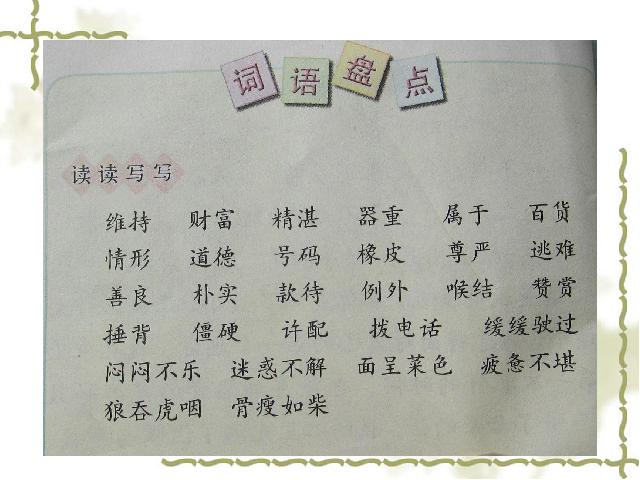 词语盘点
读读写写
维持 财富 精湛 器重 属于 百货
情形 道德 号码 橡皮 尊严 逃难
善良 朴实 款待 例外 喉结 赞赏
捶背 僵硬 许配 拨电话 缓缓驶过
闷闷不乐 迷惑不解 面呈菜色 疲惫不堪
狼吞虎咽 骨瘦如柴